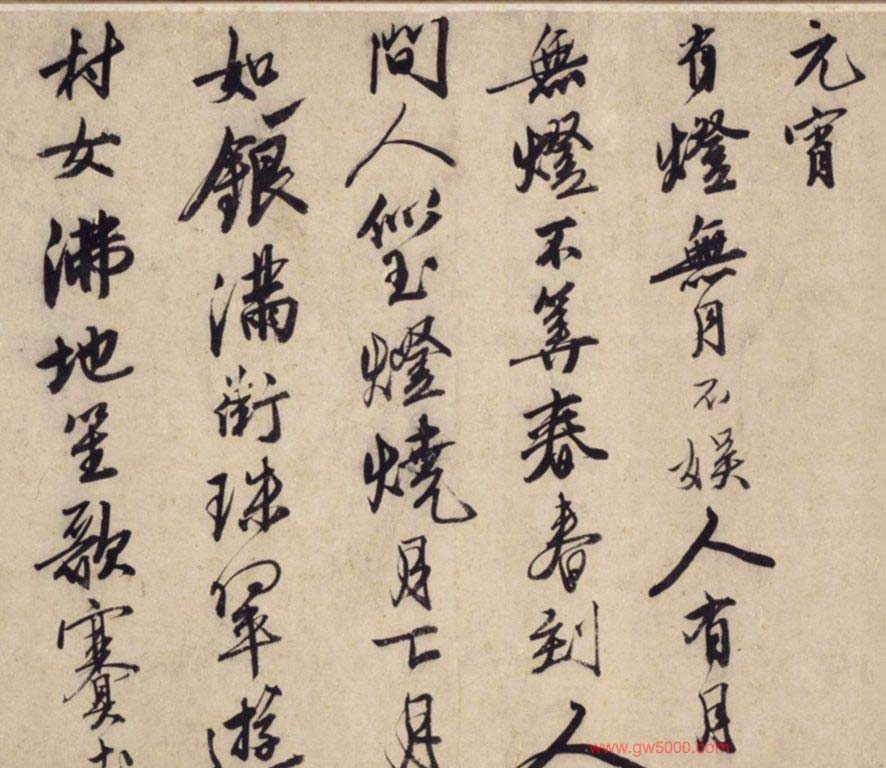 元宵
有燈無月不娛人有月
無燈不算春春到人
間人似玉燈燒月下月
如銀滿街珠翠遊
村女沸地笙歌賽
www.gw5000.com